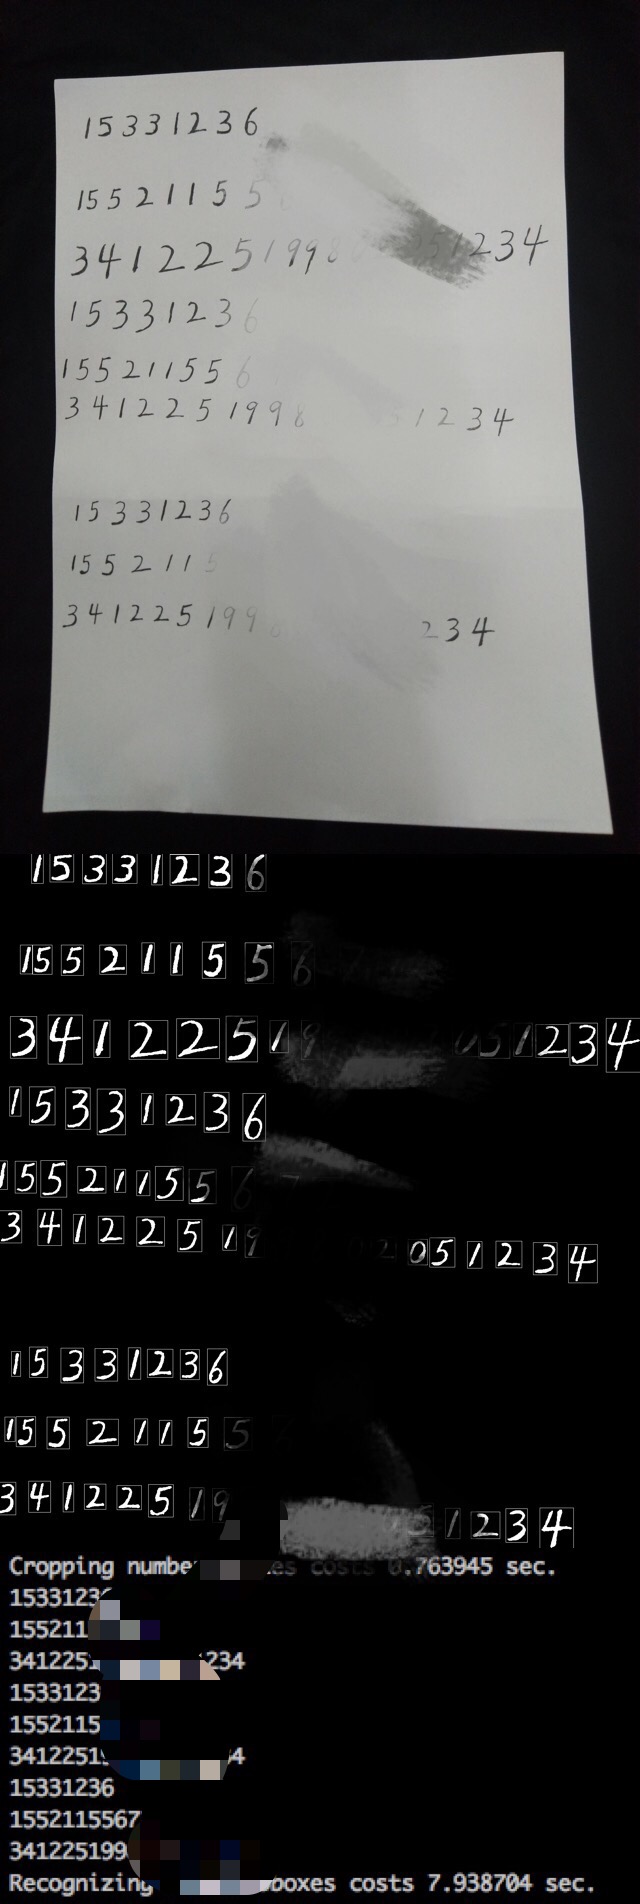 15331236
15521155
3412251998 51234
15331236
155211556
3412251998 1234
15331236
1552115
341225199 234
15331236
155211556
34122519 051234
15331236
155211556
34122519 2051234
15331236
15521155
34122519 51234
Cropping costs 0.763945 sec.
1533123
155211
341225 234
1533123
1552115
3412251 4
15331236
1552115567
341225199
Recognizing boxes costs 7.938704 sec.